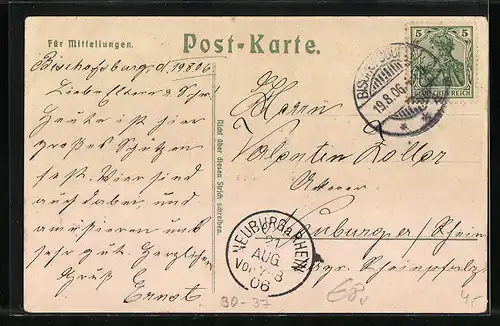 Für Mitteilungen.
Post-Karte.
Bischofsburg, d. 19.8.06
Liebe Eltern & Schw!
Heute ist hier
großes Schützen
fest. Wir sind
auf dabei und
amüsieren uns
sehr gut. Herzlichen
Gruß Ernst
Nicht über diesen Strich schreiben.
Herrn
Valentin Zoller
Ackerer
Neuburg a/Rhein
Rheinpfalz
5 5
DEUTSCHES REICH
BISCHOFSBURG
19.8.06
NEUBURG a. RHEIN
21
AUG.
Vor. 7-8
06
30-37